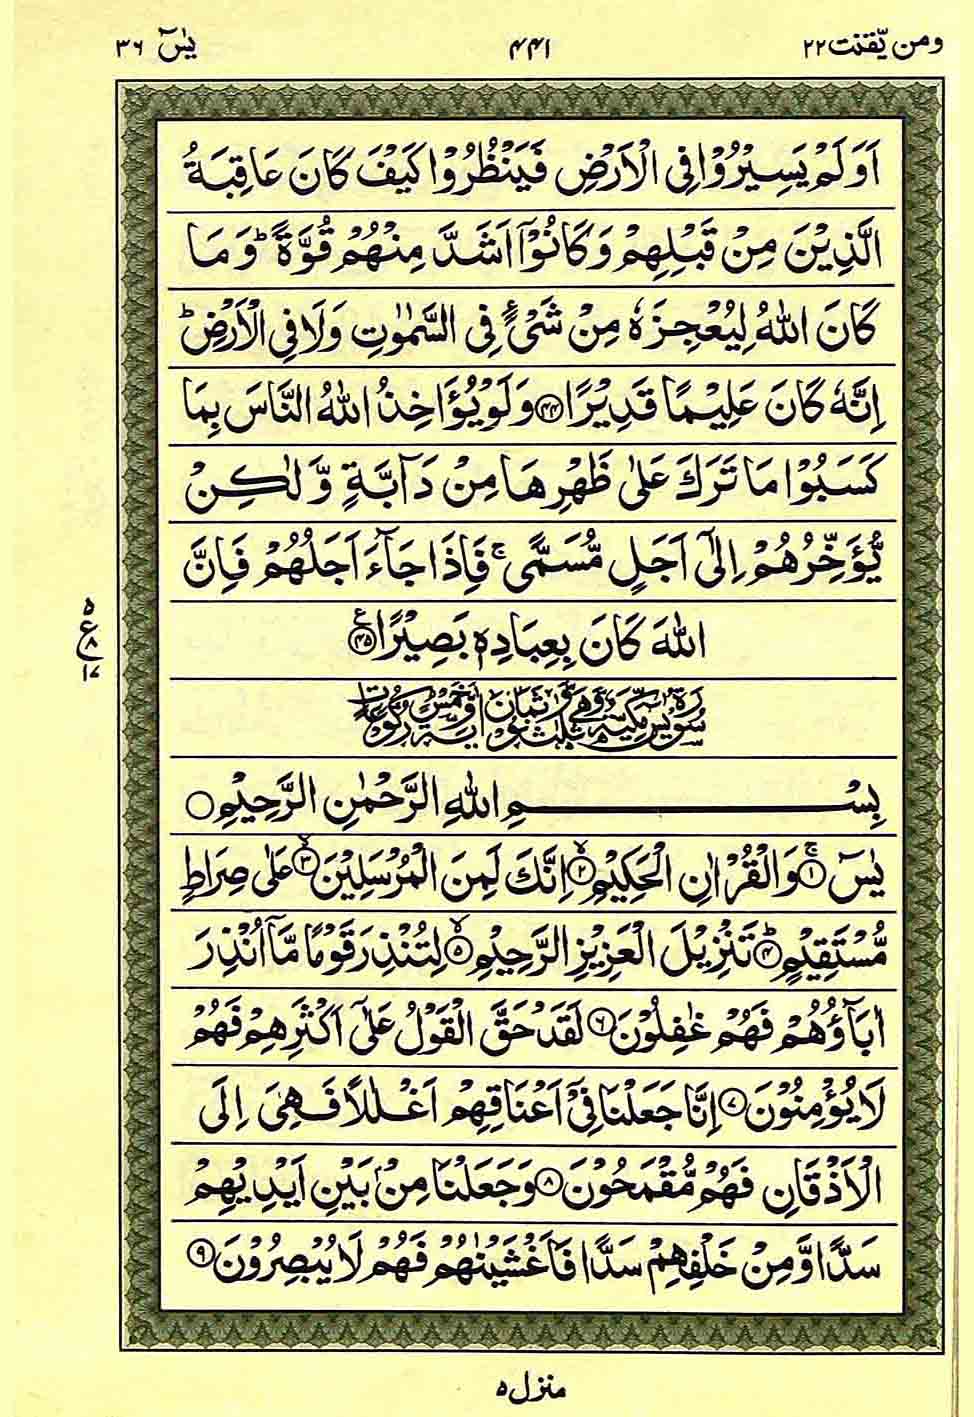 ومن یّقنت ۲۲ ۴۴۱ یٰسٓ ۳۶
اَوَلَمْ یَسِیْرُوْا فِی الْاَرْضِ فَیَنْظُرُوْا كَیْفَ كَانَ عَاقِبَةُ
الَّذِیْنَ مِنْ قَبْلِهِمْ وَ كَانُوْۤا اَشَدَّ مِنْهُمْ قُوَّةًؕ وَ مَا
كَانَ اللّٰهُ لِیُعْجِزَهٗ مِنْ شَیْءٍ فِی السَّمٰوٰتِ وَ لَا فِی الْاَرْضِؕ
اِنَّهٗ كَانَ عَلِیْمًا قَدِیْرًا ۴۴ وَ لَوْ یُؤَاخِذُ اللّٰهُ النَّاسَ بِمَا
كَسَبُوْا مَا تَرَكَ عَلٰى ظَهْرِهَا مِنْ دَآبَّةٍ وَّ لٰكِنْ
یُّؤَخِّرُهُمْ اِلٰۤى اَجَلٍ مُّسَمًّىۚ فَاِذَا جَآءَ اَجَلُهُمْ فَاِنَّ
اللّٰهَ كَانَ بِعِبَادِهٖ بَصِیْرًا ۴۵ ع
۵
ع ۸
۱۷
سورة یٰسٓ مكیة وهی ثلث وثمانون اٰیة وخمس ركوعات
بِسْمِ اللّٰهِ الرَّحْمٰنِ الرَّحِیْمِ
یٰسٓۚ ۱ وَ الْقُرْاٰنِ الْحَكِیْمِۙ ۲ اِنَّكَ لَمِنَ الْمُرْسَلِیْنَۙ ۳ عَلٰى صِرَاطٍ
مُّسْتَقِیْمٍؕ ۴ تَنْزِیْلَ الْعَزِیْزِ الرَّحِیْمِۙ ۵ لِتُنْذِرَ قَوْمًا مَّاۤ اُنْذِرَ
اٰبَآؤُهُمْ فَهُمْ غٰفِلُوْنَ ۶ لَقَدْ حَقَّ الْقَوْلُ عَلٰۤى اَكْثَرِهِمْ فَهُمْ
لَا یُؤْمِنُوْنَ ۷ اِنَّا جَعَلْنَا فِیْۤ اَعْنَاقِهِمْ اَغْلٰلًا فَهِیَ اِلَى
الْاَذْقَانِ فَهُمْ مُّقْمَحُوْنَ ۸ وَ جَعَلْنَا مِنْۢ بَیْنِ اَیْدِیْهِمْ
سَدًّا وَّ مِنْ خَلْفِهِمْ سَدًّا فَاَغْشَیْنٰهُمْ فَهُمْ لَا یُبْصِرُوْنَ ۹
منزل ۵